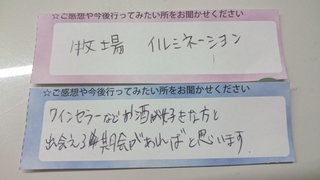 ☆ご感想や今後行ってみたい所をお聞かせください
牧場 イルミネーション
☆ご感想や今後行ってみたい所をお聞かせください
ワインセラーなどお酒が好きな方と
出会える 会があればと思います